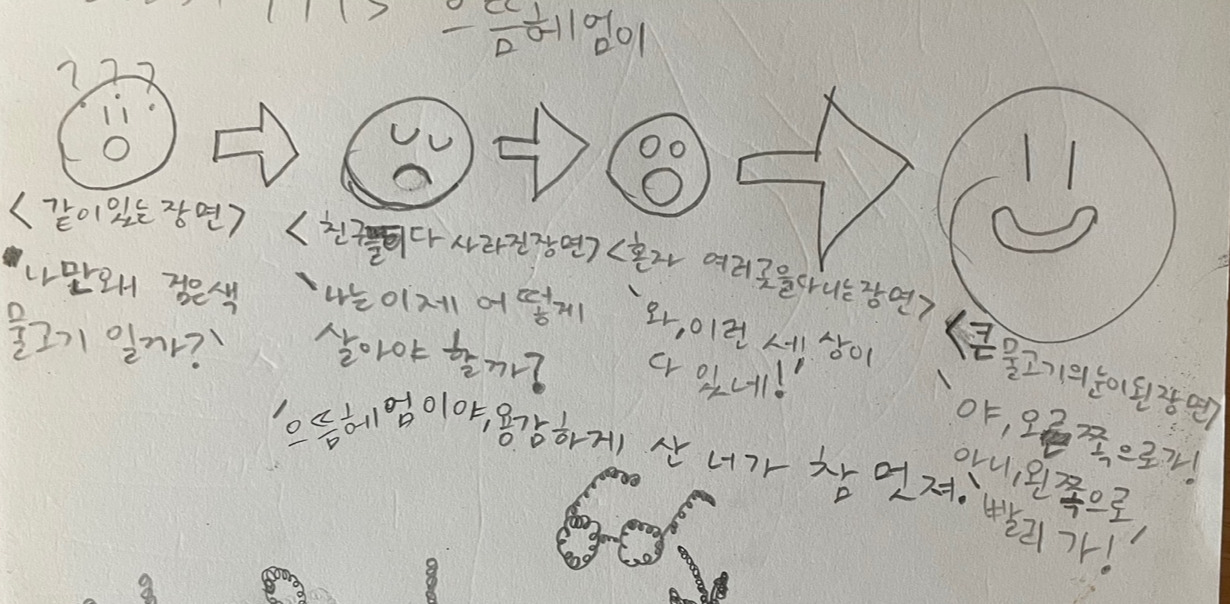 으뜸헤엄이
? ? ?
<같이있는장면>
'나만왜 검은색
물고기 일까?'
<친구들이다 사라진장면>
'나는이제 어떻게
살아야 할까?
<혼자 여러곳을다니는장면>
'와,이런 세상이
다 있네!'
<큰물고기의눈이된장면>
'야, 오른쪽으로가!
아니,왼쪽으로
빨리 가!'
'으뜸헤엄이야,용감하게 산 너가 참 멋져.'